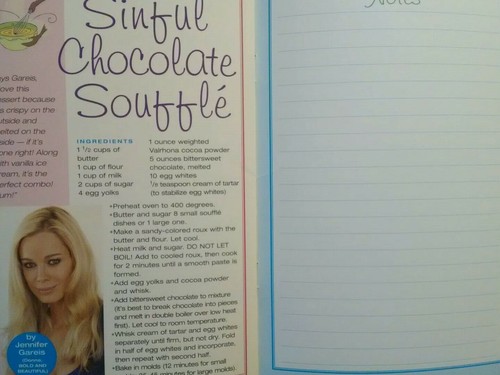 Sinful
Chocolate
Soufflé
ys Gareis,
ove this
essert because
s crispy on the
utside and
elted on the
side — if it's
one right! Along
ith vanilla ice
eam, it's the
erfect combo!
um!"
INGREDIENTS
1 1/2 cups of
butter
1 cup of flour
1 cup of milk
2 cups of sugar
4 egg yolks
1 ounce weighted
Valrhona cocoa powder
5 ounces bittersweet
chocolate, melted
10 egg whites
1/8 teaspoon cream of tartar
(to stabilize egg whites)
•Preheat oven to 400 degrees.
•Butter and sugar 8 small soufflé
dishes or 1 large one.
•Make a sandy-colored roux with the
butter and flour. Let cool.
•Heat milk and sugar. DO NOT LET
BOIL! Add to cooled roux, then cook
for 2 minutes until a smooth paste is
formed.
•Add egg yolks and cocoa powder
and whisk.
•Add bittersweet chocolate to mixture
(It's best to break chocolate into pieces
and melt in double boiler over low heat
first). Let cool to room temperature.
•Whisk cream of tartar and egg whites
separately until firm, but not dry. Fold
in half of egg whites and incorporate,
then repeat with second half.
•Bake in molds (12 minutes for small
minutes for large molds).
by
Jennifer
Gareis
(Donna,
BOLD AND
BEAUTIFUL)
Notes